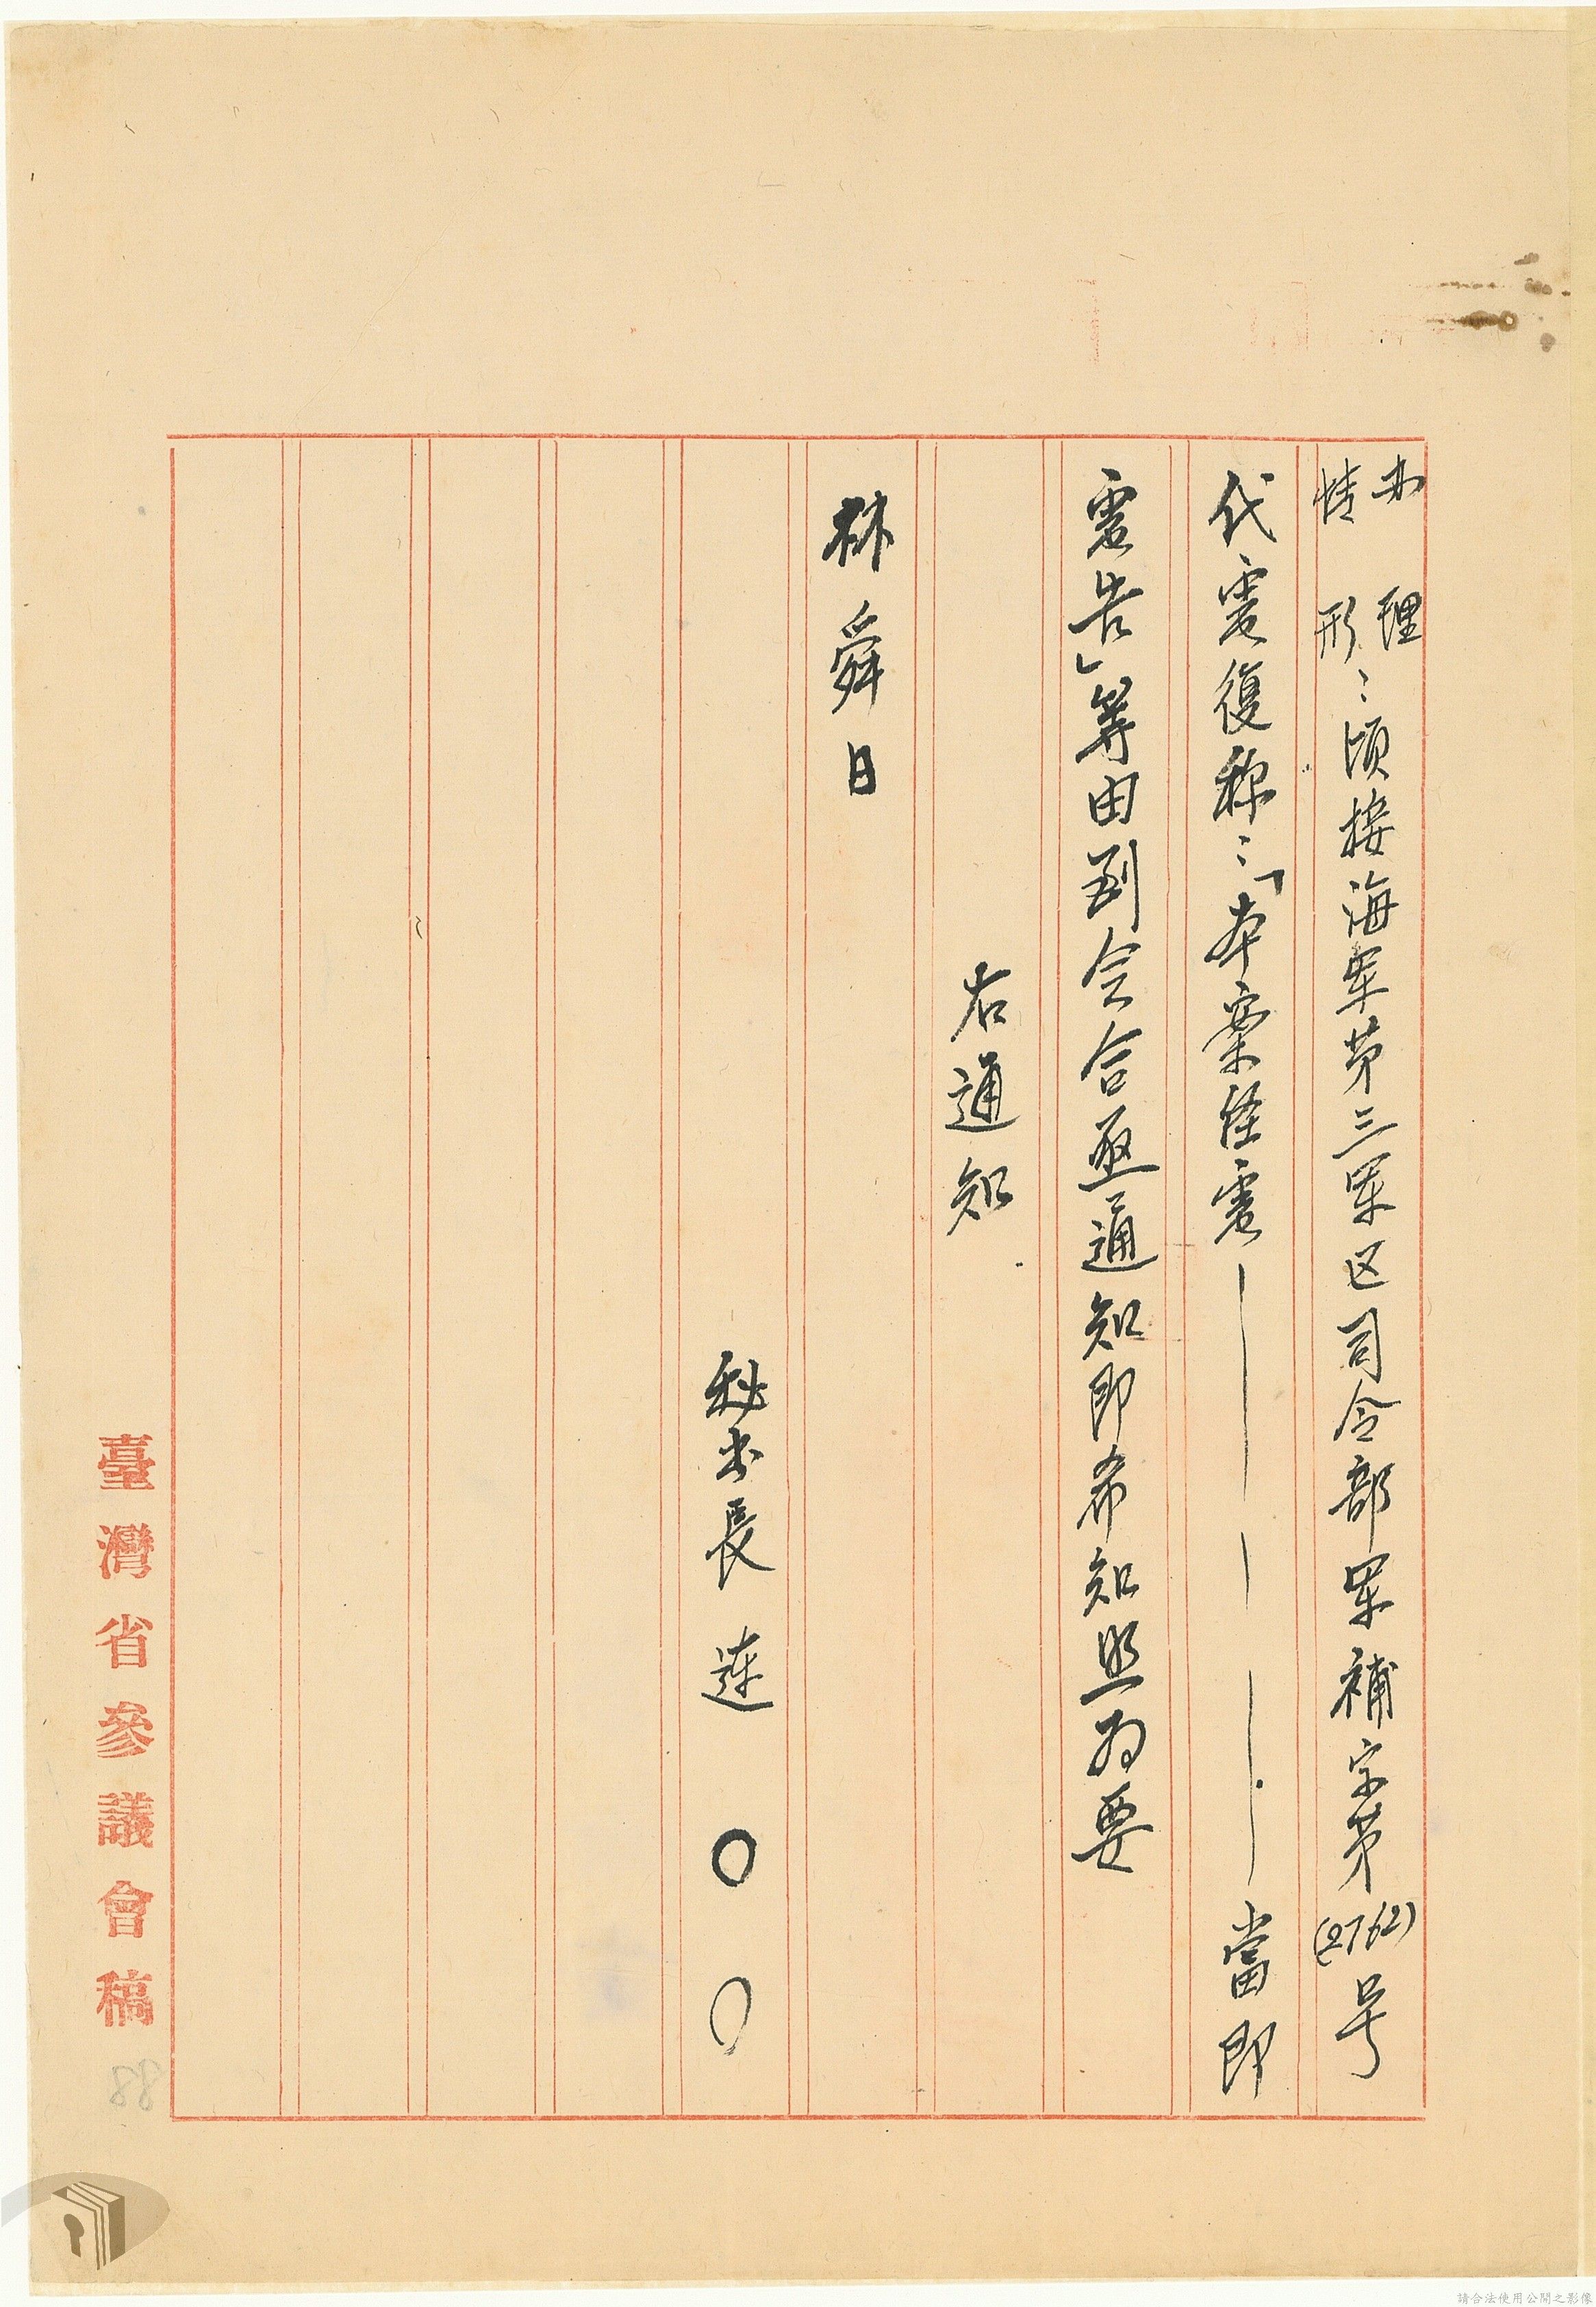 办理
情形：頃接海军第三军区司令部军補字第(2762)号
代電復称：「本案経電——— — ———當即
電告」等由到会合亟通知即希知照为要
右通知
林舜日
秘书長 連 〇 〇
臺灣省參議會稿
88
請合法使用公開之影像